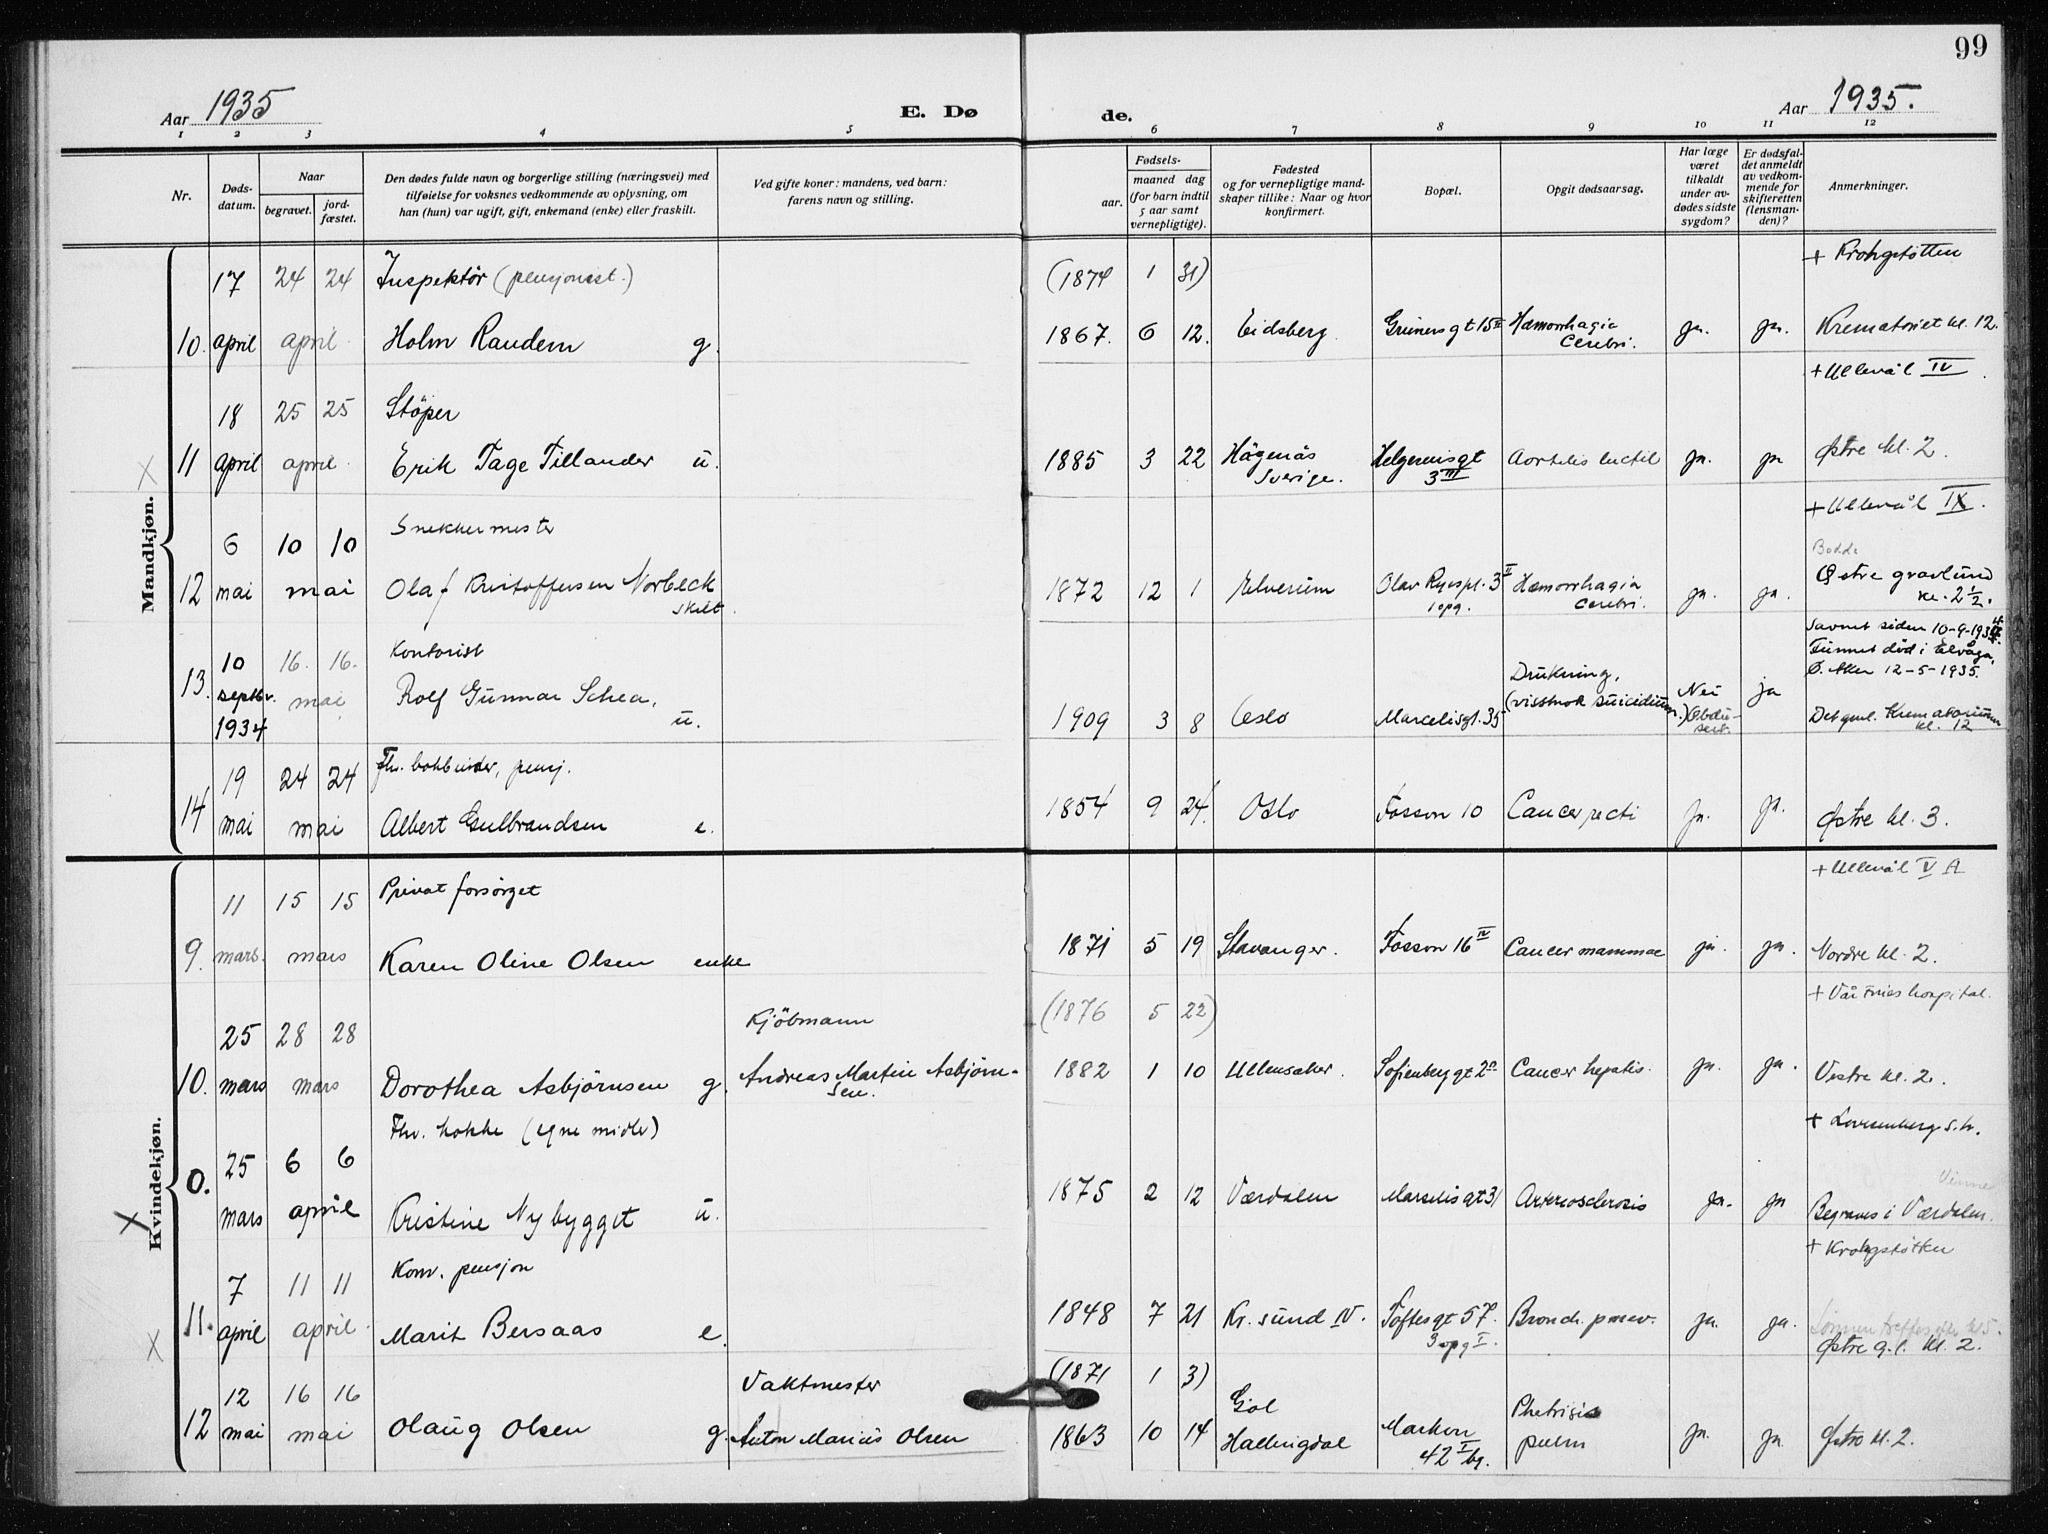 99
Aar 1935
E. Dø
de.
Aar 1935.
1 2 3 4 5 6 7 8 9 10 11 12
Nr.
Døds-
datum.
Naar
begravet.
jord-
fæstet.
Den dødes fulde navn og borgerlige stilling (næringsvei) med
tilføielse for voksnes vedkommende av oplysning, om
han (hun) var ugift, gift, enkemand (enke) eller fraskilt.
Ved gifte koner: mandens, ved barn:
farens navn og stilling.
Fødsels-
aar.
maaned dag
(for barn indtil
5 aar samt
vernepligtige).
Fødested
og for vernepligtige mand-
skaper tillike: Naar og hvor
konfirmert.
Bopæl.
Opgit dødsaarsag.
Har læge
været
tilkaldt
under av-
dødes sidste
sygdom?
Er dødsfal-
det anmeldt
av vedkom-
mende for
skifteretten
(lensman-
den)?
Anmerkninger.
Mandkjøn.
17 24 24 Inspektør (pensjonist.) (1874 1 31) + Krohgstøtten
10. april april Holm Randem g. 1867. 6 12. Eidsberg Grünersgt 15 II Hæmorrhagia ja. ja. Krematoriet kl. 12.
Cerebri.
+ Ullevål IV
18 25 25 Støper
11 april april Erik Tage Tillander u. 1885 3 22 Högenäs Helgesensgt ja. ja Østre kl. 2.
Sverige. 3 III
+ Ullevål IX.
6 10 10 Snekkermester
Bodde
12 mai mai Olaf Kristoffersen Norbeck 1872 12 1 Elverum Olav Ryespl. 3 II Hæmorrhagia ja. ja. Østre gravlund
skilt. 1 opg. Cerebri. kl. 2 1/2.
10 16. 16. Kontorist Savnet siden 10-9-1934.
13. septbr. mai Rolf Gunnar Schea, Drukning, Nei ja Funnet død i Elvåga,
Ø. Aker 12-5-1935.
1934 u. 1909 3 8 Oslo Marcelisgt. 35 (visstnok suicidium.) Obdu- Det gml. Krematorium
sert. kl. 12
19 24 24 Fhv. bokbinder, pensj.
14 mai mai Albert Gulbrandsen e. 1854 9 24. Oslo Fossvn 10 Cancer recti ja. ja. Østre kl. 3.
Kvindekjøn.
+ Ullevål V A
11 15 15 Privat forsørget
9. mars. mars Karen Oline Olsen enke 1871 5 19 Stavanger. Fossvn 16 IV Cancer mammae ja. ja. Nordre kl. 2.
25 28 28 Kjøbmann (1876 5 22) + Vår Frues hospital.
10. mars mars Dorothea Asbjørnsen g. Andreas Martin Asbjørn- 1882 1 10 Ullensaker. Sofienberggt 2 Cancer hepatis. ja. ja. Vestre kl. 2.
sen.
Fhv. kokke (egne midler) + Lovisenberg s.h.
0. 25 6 6
mars april Kristine Nybygget u. 1875 2 12 Værdalen Marselisgt 31 Arteriosclerosis ja. ja Begraves i Værdalen.
Vinne
7 11 11 Kom. pensjon + Krohgstøtten
11. april april Marit Bersaas e. 1848 7 21 Kr. sund N. Toftesgt 57. Bronch. pnev. ja. ja.
3 opg I. Østre g.l. kl. 2.
12 16 16 Vaktmester (1871 1 3)
12 mai mai Olaug Olsen g. Anton Marius Olsen 1863 10 14 Gol
Hallingdal Markvn Phthisis ja. ja. Østre kl. 2.
42 I bg. pulm